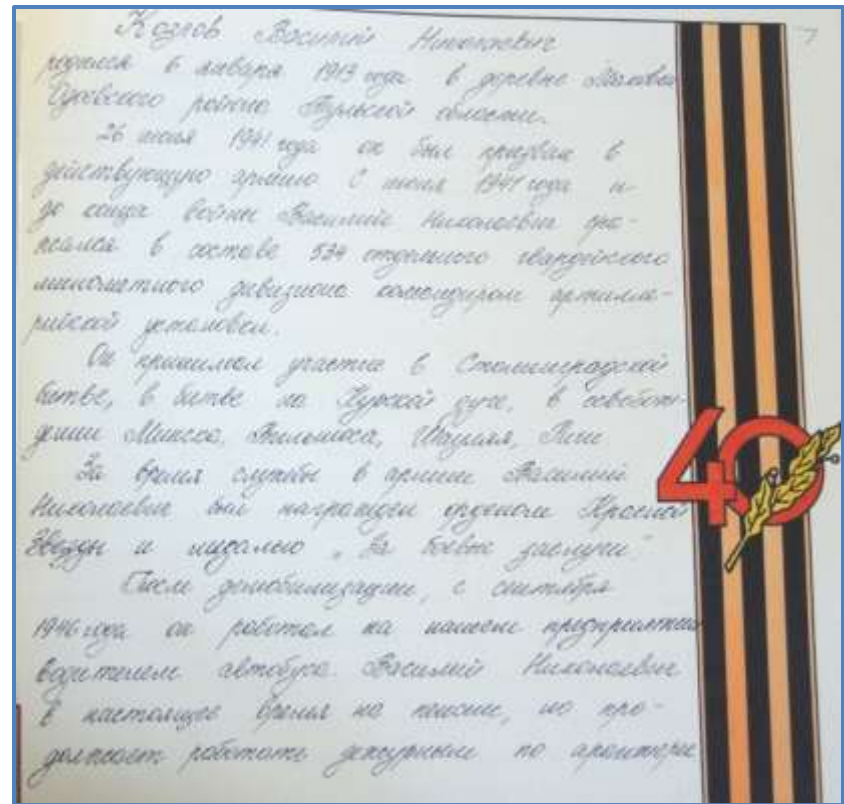 Козлов Василий Николаевич
родился 6 января 1913 года в деревне
Одоевского района Тульской области.
26 июня 1941 года он был призван в
действующую армию С июня 1941 года и
до конца войны Василий Николаевич сра-
жался в составе 534 отдельного гвардейского
минометного дивизиона командиром артилле-
рийской установки.
Он принимал участие в Сталинградской
битве, в битве на Курской дуге, в освобож-
дении Минска, Вильнюса, Шауляя, Риги
За время службы в армии Василий
Николаевич был награжден орденом Красной
Звезды и медалью „За боевые заслуги."
После демобилизации, с сентября
1946 года он работал на нашем предприятии
водителем автобуса. Василий Николаевич
в настоящее время на пенсии, но про-
должает работать дежурным по
40